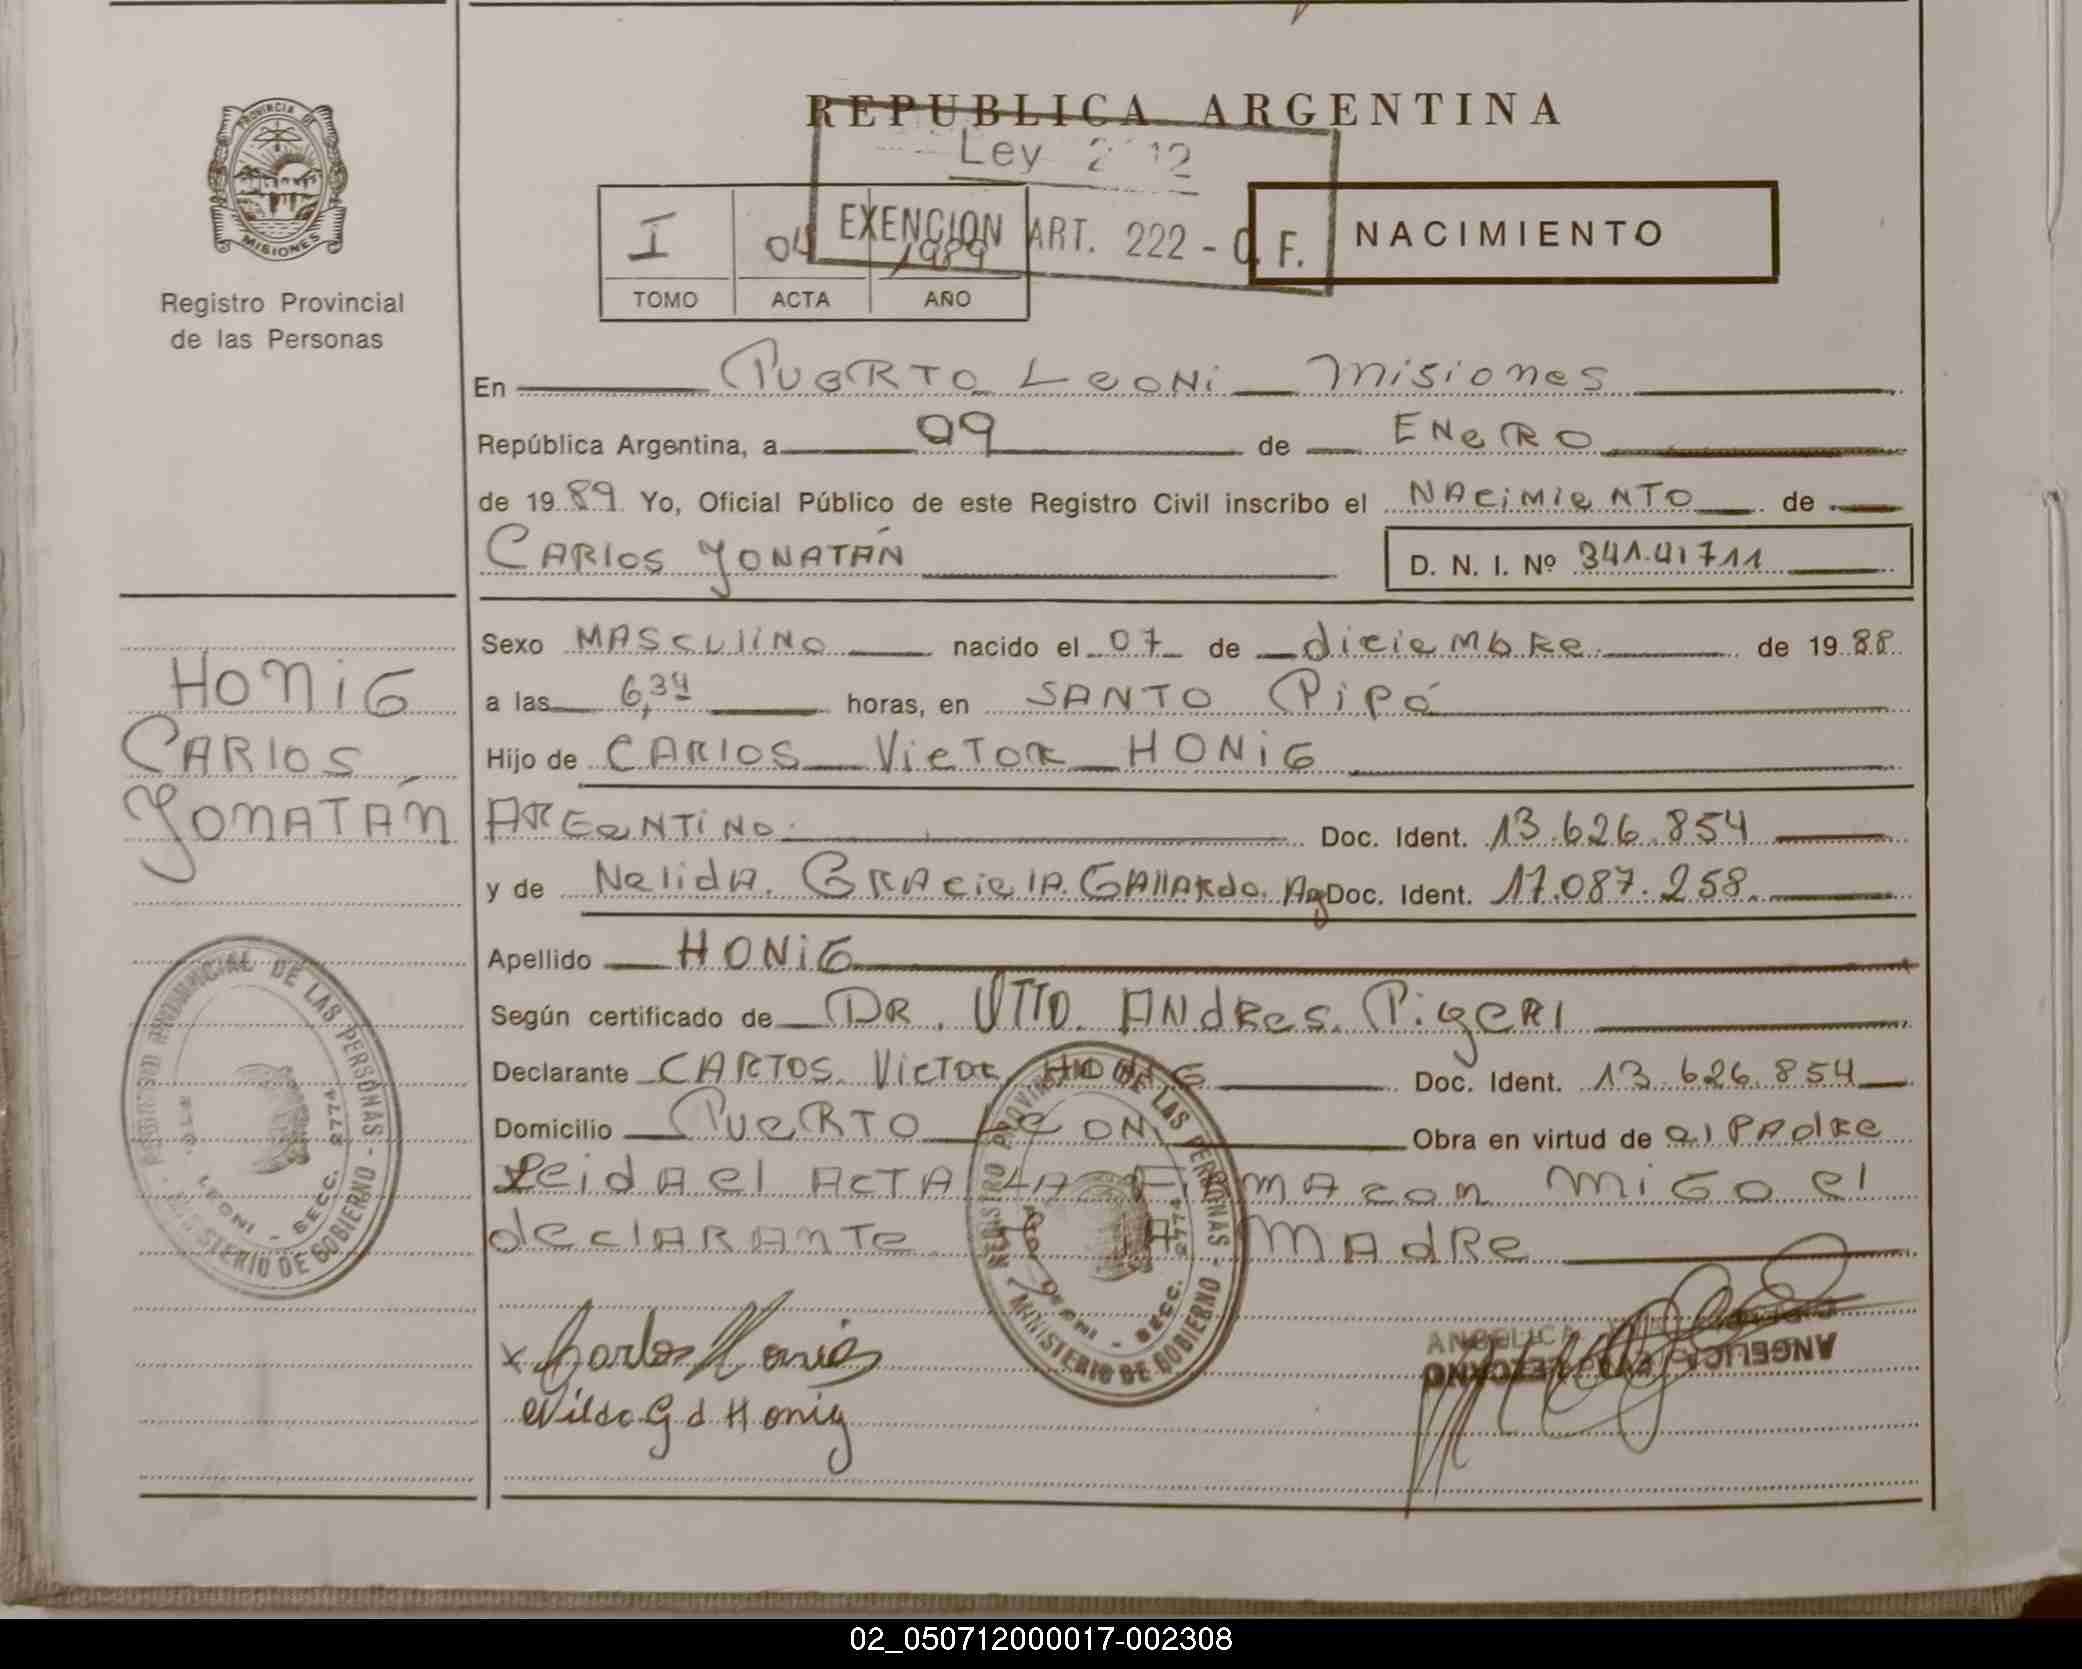 PROVINCIA DE
MISIONES
Registro Provincial
de las Personas
REPUBLICA ARGENTINA
Ley
EXENCION ART. 222 - C. F.
NACIMIENTO
I 04 1989
TOMO ACTA AÑO
En PUERTO LEONI MISIONES
República Argentina, a 09 de ENERO
de 1989 Yo, Oficial Público de este Registro Civil inscribo el NACIMIENTO de
CARLOS YONATÁN D. N. I. Nº 341.41711
Sexo MASCULINO nacido el 07 de diciembre de 1988
a las 6,34 horas, en SANTO PIPÓ
Hijo de CARLOS VICTOR HONIG
ARGENTINO Doc. Ident. 13.626.854
y de NELIDA GRACIELA GALLARDO Ag Doc. Ident. 17.087.258
Apellido HONIG
Según certificado de DR. OTTO ANDRES
Declarante CARLOS VICTOR HONIG Doc. Ident. 13.626.854
Domicilio PUERTO LEONI Obra en virtud de el PADRE
Leida el ACTA LA FIRMA con MIGO el
declARANTE Y LA MADRE
HONIG
CARLOS
YONATÁN
REGISTRO PROVINCIAL DE LAS PERSONAS - MINISTERIO DE GOBIERNO -
PTO. LEONI - SECC. 2774
REGISTRO PROVINCIAL DE LAS PERSONAS - MINISTERIO DE GOBIERNO -
PTO. LEONI - SECC. 2774
x Carlos Honig
Nilda G d Honig
ANGELICA
ANGELICA
02_050712000017-002308